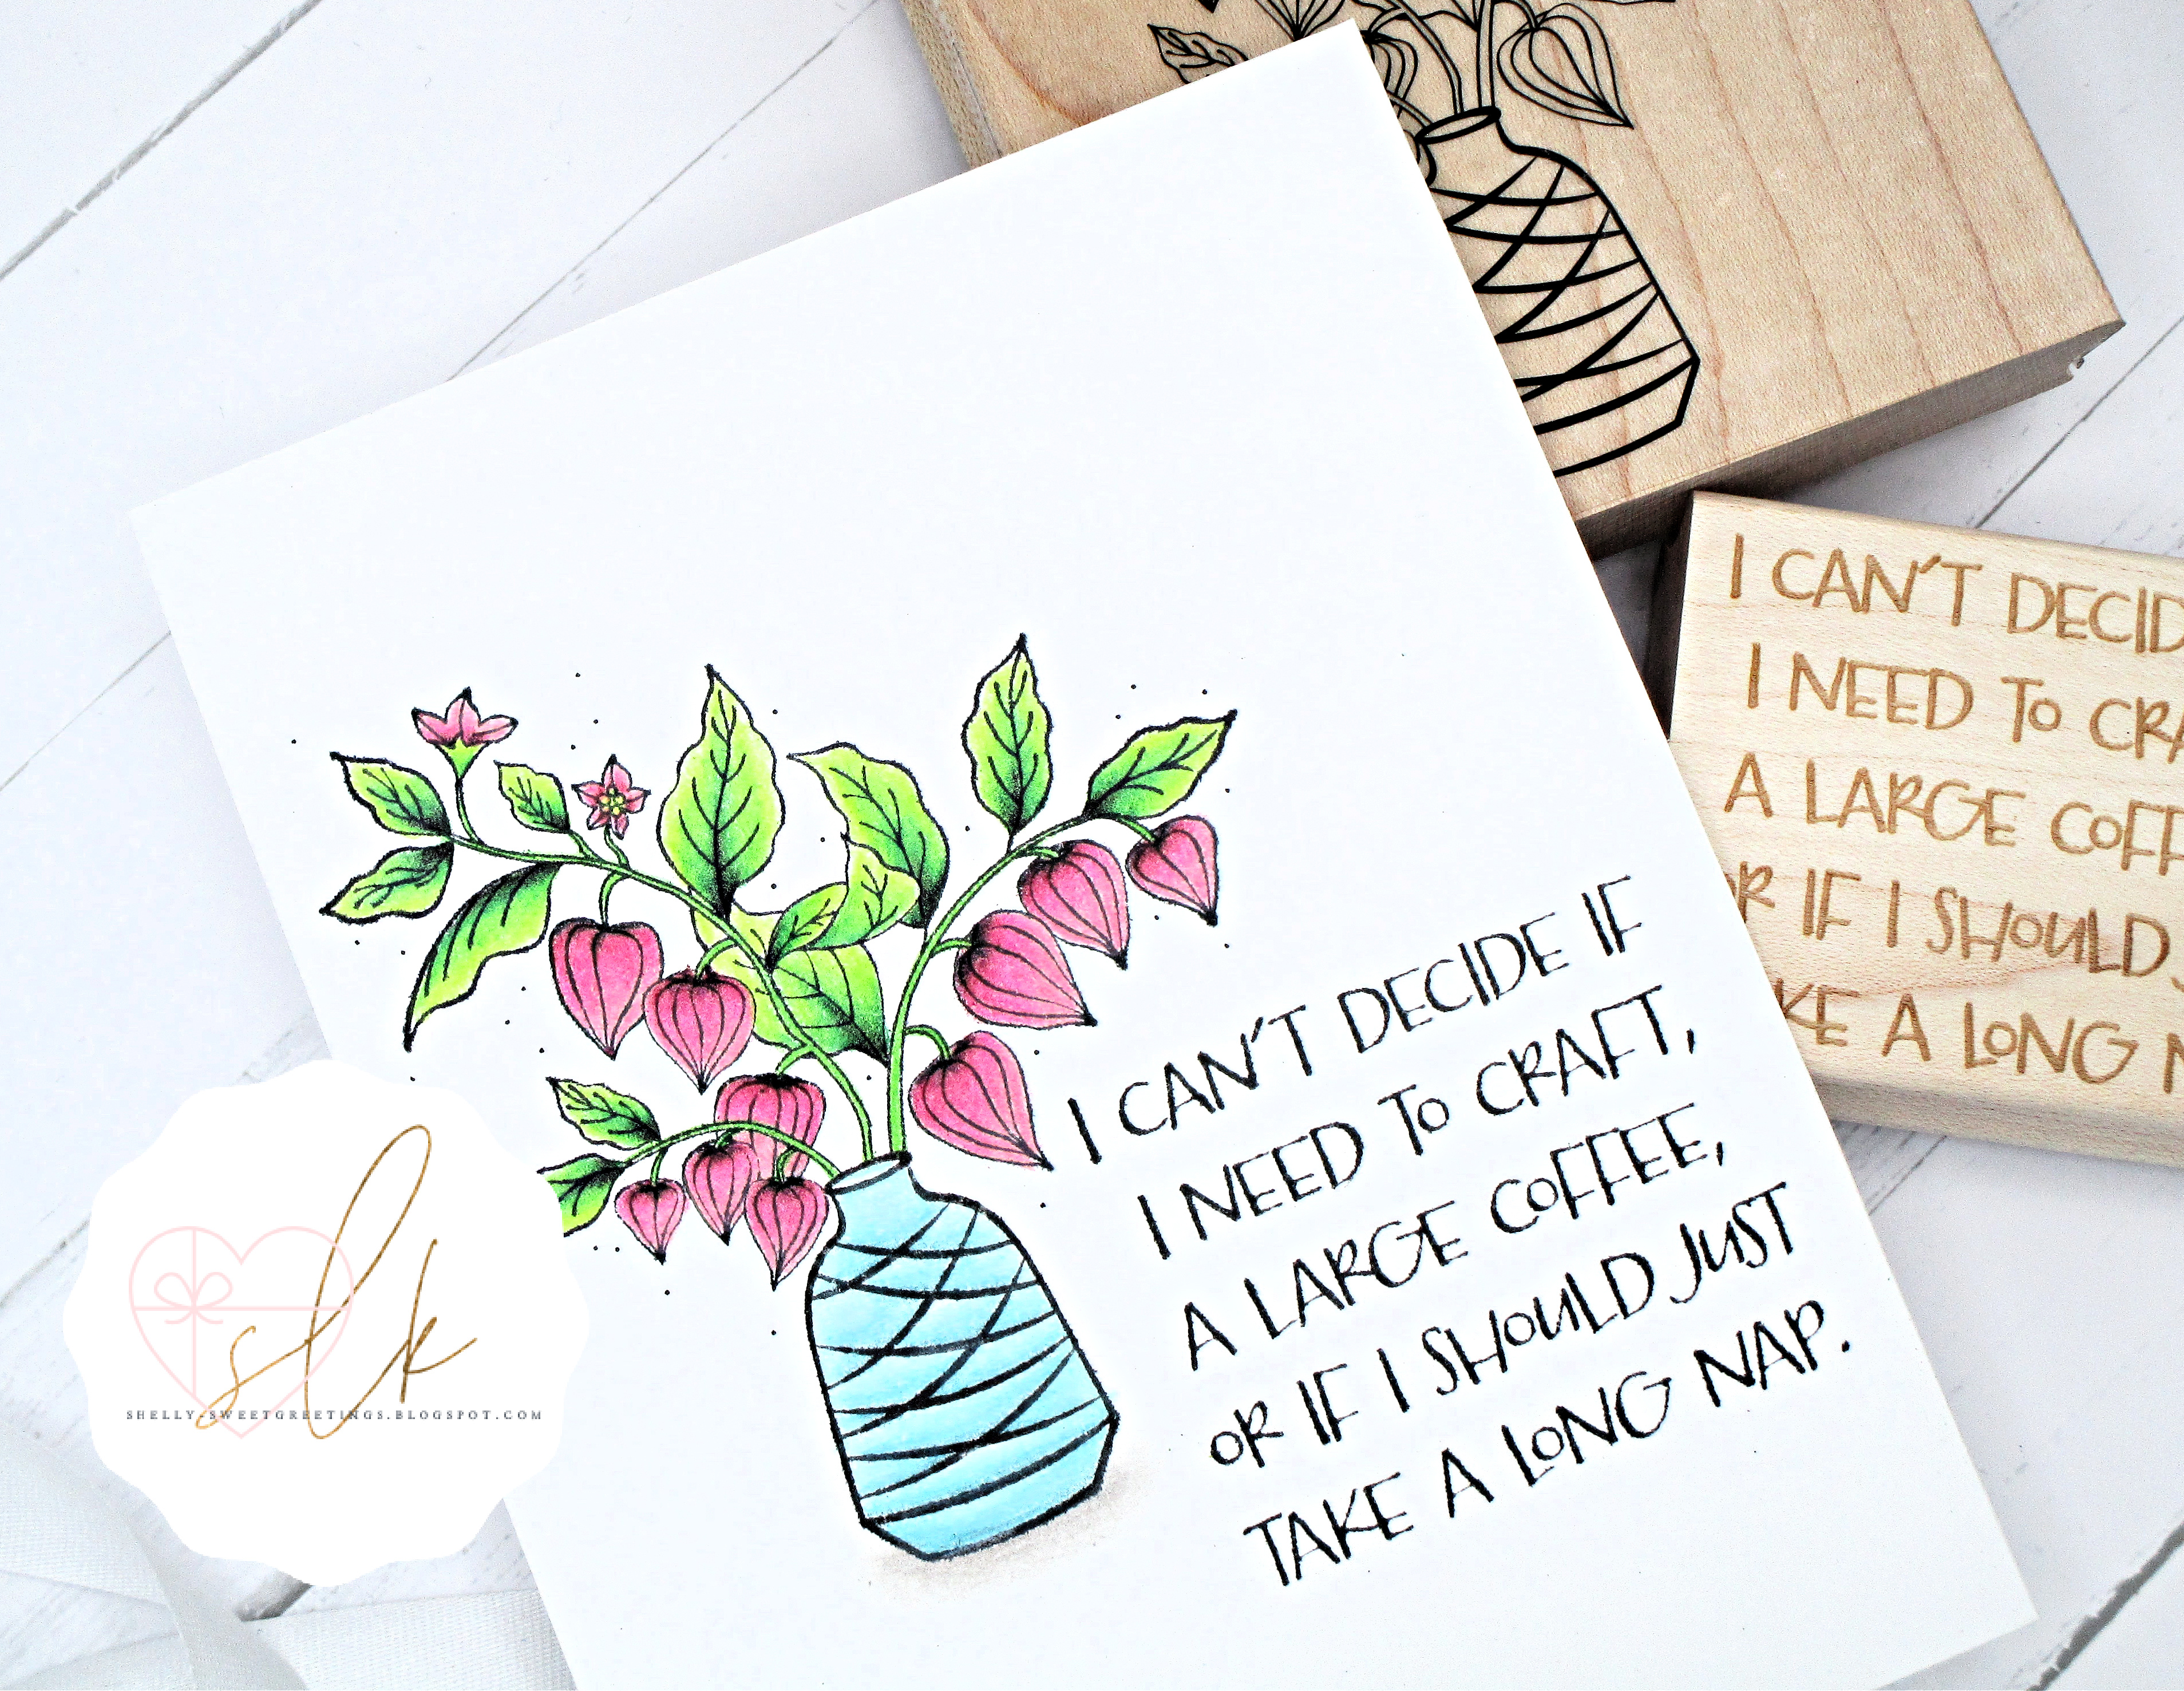 I CAN'T DECIDE IF
I NEED TO CRAFT,
A LARGE COFFEE,
OR IF I SHOULD JUST
TAKE A LONG NAP.
I CAN'T DECID
I NEED TO CRA
A LARGE COFF
OR IF I SHOULD
KE A LONG N
slk
SHELLY-SWEETGREETINGS.BLOGSPOT.COM